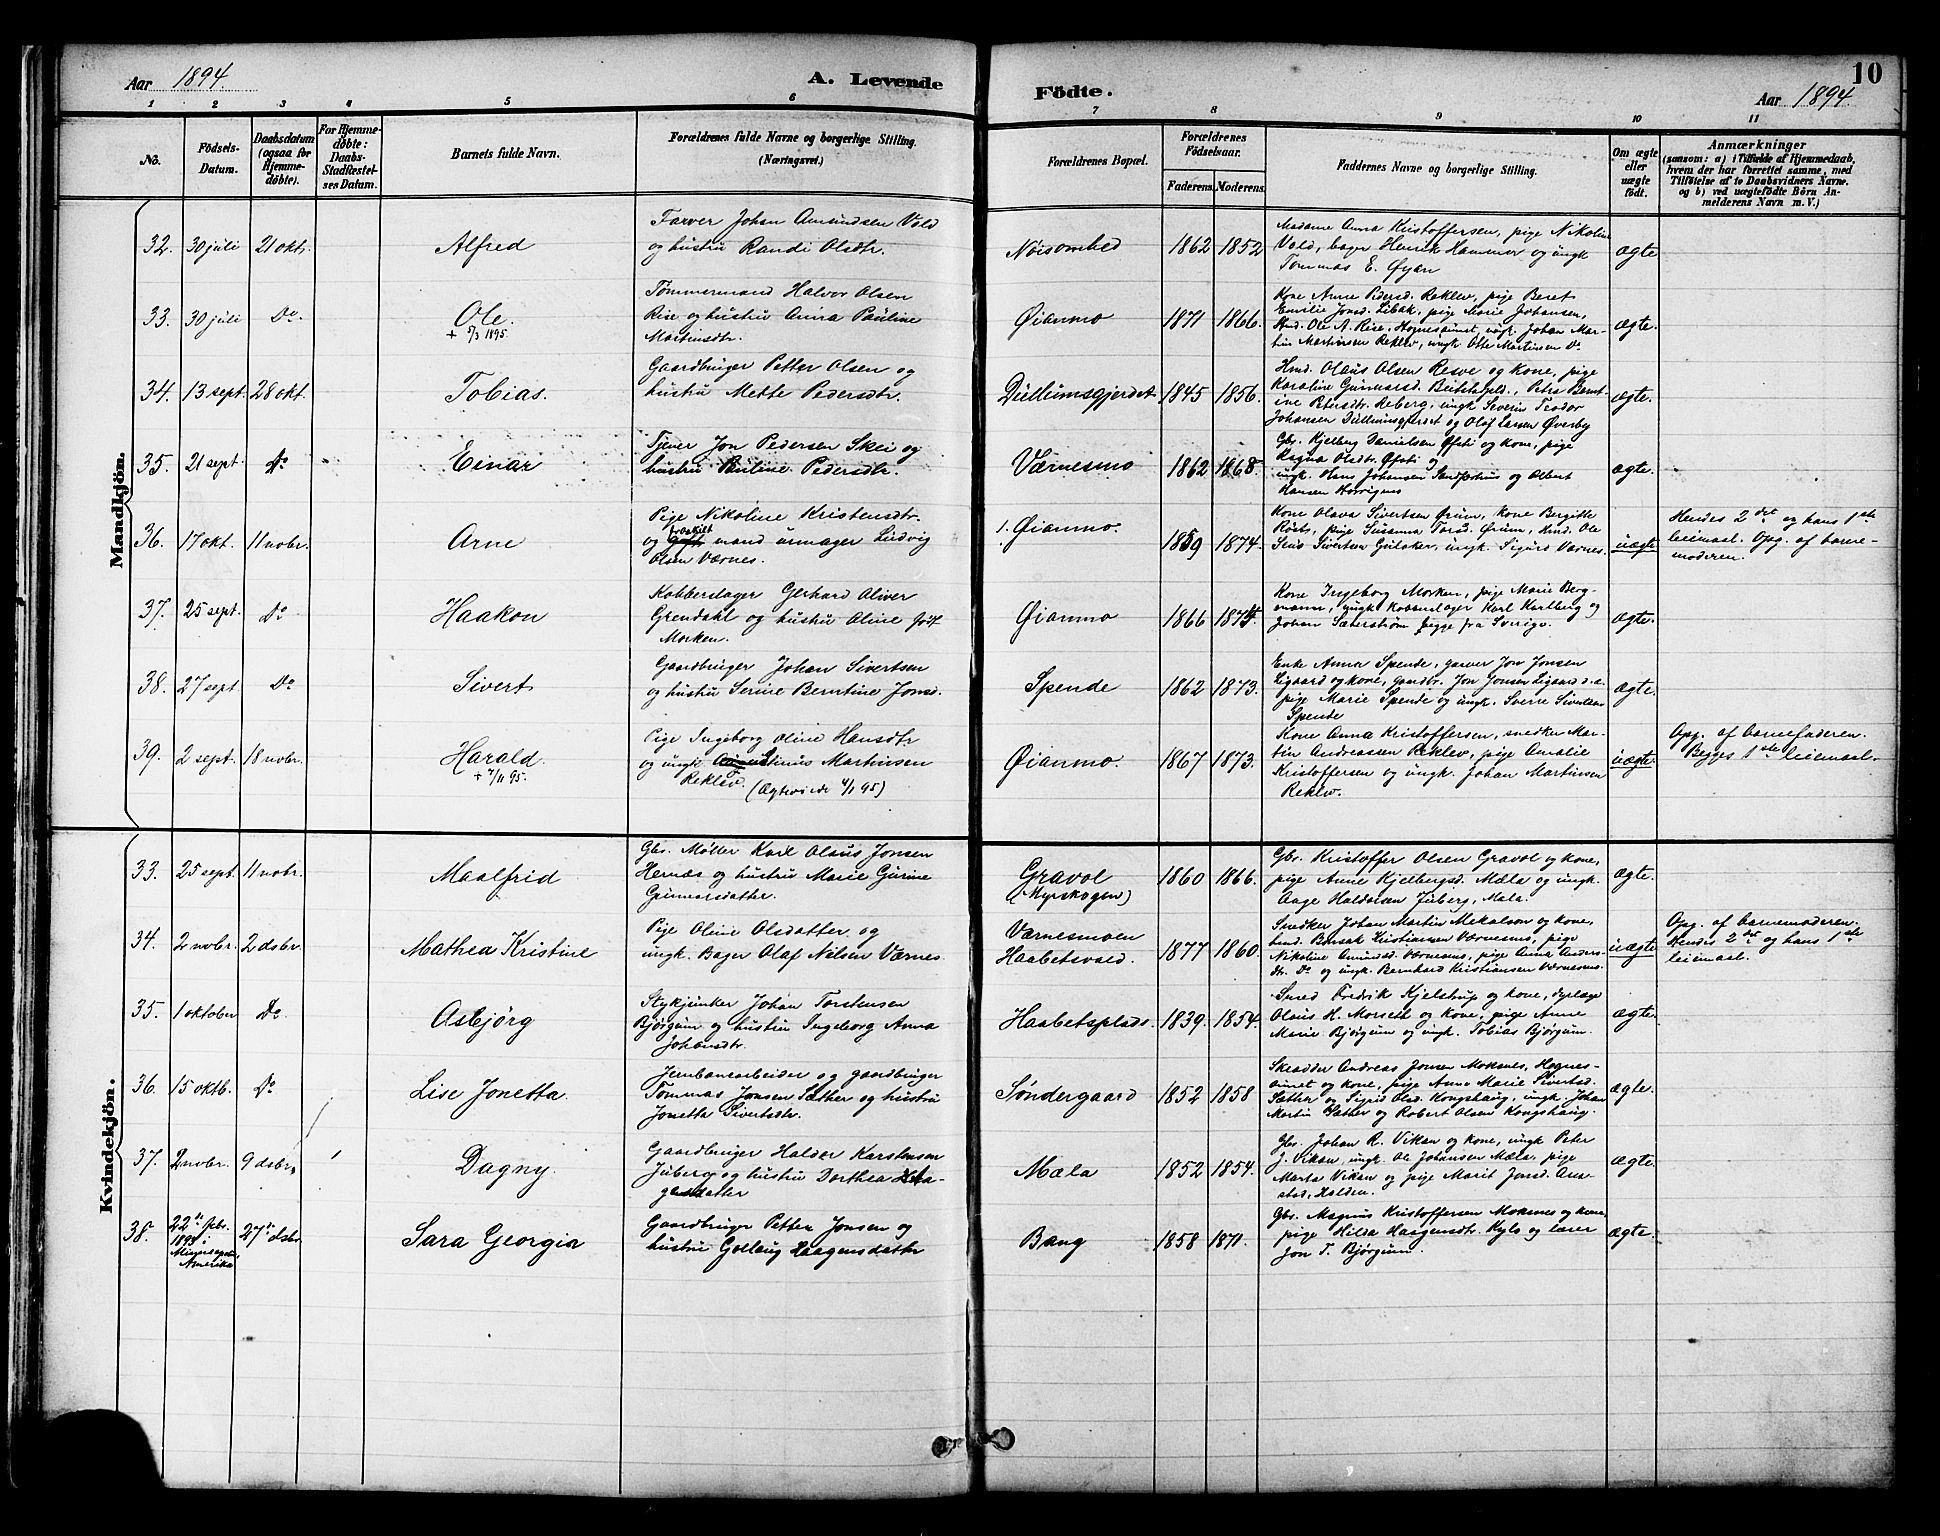 Aar 1894. A. Levende
1 2 3 4 5 6
No. Födsels-Datum. Daabsdatum (ogsaa for Hjemmedøbte). For Hjemmedøbte: Daabs-Stadfæstelses Datum. Barnets fulde Navn. Forældrenes fulde Navne og borgerlige Stilling. (Næringsvei.)
Mandkjön.
32. 30 juli 21 okt. Alfred
Farver Johan Amundsen Vold
og hustru Randi Olsdtr.
33. 30 juli Do Ole.
+ 5/3 1895.
Tømmermand Halvor Olsen
Rise og hustru Anna Pauline
Martinsdtr.
34. 13 sept. 28 okt. Tobias.
Gaardbruger Petter Olsen og
hustru Mette Pedersdtr.
35. 21 sept. Do Einar
Tjener Jon Pedersen Skei og
hustru Pauline Pedersdtr.
36. 17 okt. 11 nobr. Arne
Pige Nikoline Kristensdtr.
og fraskilt mand urmager Ludvig
Olsen Værnes.
37. 25 sept. Do Haakon
Kobberslager Gerhard Oliver
Grendahl og hustru Oline
Morken.
38. 27 sept. Do Sivert
Gaardbruger Johan Sivertsen
og hustru Serine Berntine Jonsd.
39. 2 sept. 18 nobr. Harald.
+ 7/11 95.
Pige Ingeborg Oline Hansdtr
og ungk. Martinsen
Reklev.
Kvindekjön.
33. 25 sept. 11 nobr. Maalfrid
Gbr. Møller Karl Olaus Jonsen
Hernæs og hustru Marie Gurine
Gunnarsdatter.
34. 2 nobr. 2 dsbr. Mathea Kristine
Pige Oline Olsdatter og
ungk. Bager Olaf Nilsen Værnes.
35. 1 oktober Do Asbjörg
Stykjunker Johan Torstensen
Bjørgum og hustru Ingeborg Anna
Johnsdtr.
36. 15 oktb. Do Lise Jonetta.
Jernbanearbeider og gaardbruger
Tommas Jonsen Sæther og hustru
Jonetta Sivertsdtr.
37. 2 nobr. 9 dsbr. Dagny.
Gaardbruger Haldor Karstensen
Juberg og hustru Dorthea Aa-
gesdatter
38. 22de febr. 1893 i Amerika 27de dsbr. Sara Georgia
Gaardbruger Petter Jonsen og
hustru Gollaug Haagensdatter
Födte. Aar 1894. 10
7 8 9 10 11
Forældrenes Bopæl. Forældrenes Födselsaar. Faderens. Moderens. Faddernes Navne og borgerlige Stilling. Om ægte eller uægte födt. Anmærkninger (saasom: a) i Tilfælde af Hjemmedaab, hvem der har forrettet samme, med Tilföielse af to Daabsvidners Navne. og b) ved uægtefödte Börn Anmelderens Navn m. V.)
Nøisomhed 1862 1852
Madame Anna Kristoffersen, pige Nikoline
Vold, bager Henrik Hammer og ungk
Tommas E. Øyan
ægte
Øianmo 1871 1866.
Kone Anne Pedersd. Reklev, pige Beret
Emilie Jonsd. Libak, pige Marie Johansen,
Hmd. Ole A. Rise, Hognesaunet, ungk. Johan Mar-
tin Martinsen Reklev, ungk. Otte Martinsen Do
ægte.
Dullumsgjerdet 1845 1856.
Hmd. Olaus Olsen Resve og kone, pige
Karoline Gunnarsd. Petra Bernt-
ine Petersdtr. Reberg, ungk Severin Teodor
Johansen Dullumsgjerdet og Olaf Larsen Øverby
ægte.
Værnesmo 1862 1868.
Gbr. Kjelberg Danielsen Øfsti og kone, pige
Ragna Olsdtr. Øfsti og
ungk. Hans Johansen Sandferhus og Albert
Hansen
ægte.
1. Øianmo. 1859 1874.
Kone Olava Sivertsen Ørum, kone Bergitte
Røst, pige Susanna Ørum, Hmd. Ole
Jens Sivertsen ungk. Sigurd Værnes.
uægte
Hendes 2det og hans 1ste
leiemaal. Opg. af barne-
moderen.
Øianmo 1866
Kone Ingeborg Morken, pige Marie Berg-
mann, ungk kobberslager Karl Karlberg og
Johan Sæterstrøm begge fra Sverige.
ægte.
Spende 1862 1873.
Enke Anna Spende, garver Jon Jonsen
Ligaard og kone, gaardbr. Jon Jonsen Ligaard
pige Marie Spende og ungk. Sverre Sivertsen
Spende
ægte.
Øianmo. 1867 1873.
Kone Anna Kristoffersen, snedker Mar-
tin Andreassen Reklev, pige Amalie
Kristoffersen og ungk. Johan Martinsen
Reklev.
uægte.
Opg. af barnefaderen.
Begges 1ste leiemaal.
Gravol
(Myrskogen) 1860 1866.
Gbr. Kristoffer Olsen Gravol og kone,
pige Anne Kjelbergsd. Mæla og ungk.
Aage Haldorsen Juberg, Mæla.
ægte.
Værnesmoen
Haabetsvold. 1877 1860.
Snedker Johan Martin Mekalsen og kone,
hmd. Kristiansen Værnesmo, pige
Nikoline Amundsd. Værnesmo, pige Anna Anders-
dtr. Do og ungk. Bernhard Kristiansen Værnesmo.
uægte
Opg. af barnemoderen.
Hendes 2det og hans 1ste
leiemaal.
Haabetsplads. 1839. 1854.
Smed Fredrik Kjelstrup og kone, dyrlæge
Olaus H. Morseth og kone, pige Anne
Marie Bjørgum og ungk. Tobias Bjørgum.
ægte.
Søndergaard 1852 1858
Skrædder Andreas Jonsen Moksnes, Hognes-
aunet og kone, pige Anna Marie Sivertsd.
Sætter og Sigrid Olsd. Kongshaug, ungk. Johan
Martin Sætter og Robert Olsen Kongshaug.
ægte.
Mæla 1852 1854.
Gbr. Johan R. Vikan og kone, ungk Peter
J. Vikan, ungk. Ole Johansen Mæla, pige
Marta Vikan og pige Marit Jonsd.
Halden.
ægte.
Bang 1858 1871.
Gbr. Magnus Kristoffersen Moksnes og kone,
pige Hilda Haagensdtr. Kylo og lærer
Jon T. Bjørgum.
ægte.